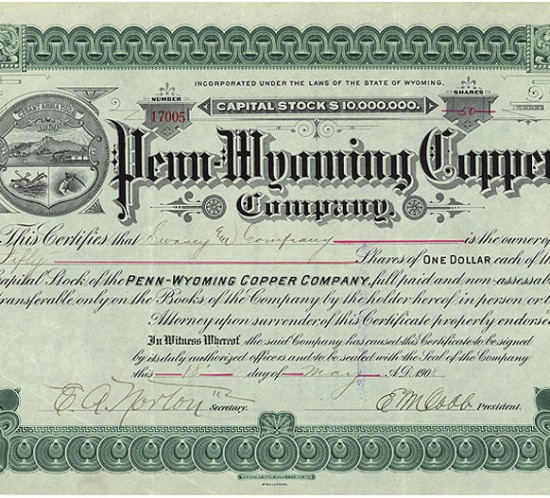 INCORPORATED UNDER THE LAWS OF THE STATE OF WYOMING.
NUMBER
17005
CAPITAL STOCK $ 10,000,000.
SHARES
50
Penn-Wyoming Copper
Company.
This Certifies that Swasey & Company is the owner of
Fifty Shares of ONE DOLLAR each of the
Capital Stock of the PENN-WYOMING COPPER COMPANY, full paid and non-assessab
transferable only on the Books of the Company by the holder hereof in person, or b
Attorney upon surrender of this Certificate properly endorse
In Witness Whereof, the said Company has caused this Certificate to be signed
by its duly authorized officers and to be sealed with the Seal of the Company
this 15 day of May A.D. 1908
E. A. Norton Secretary.
E M Cobb President.